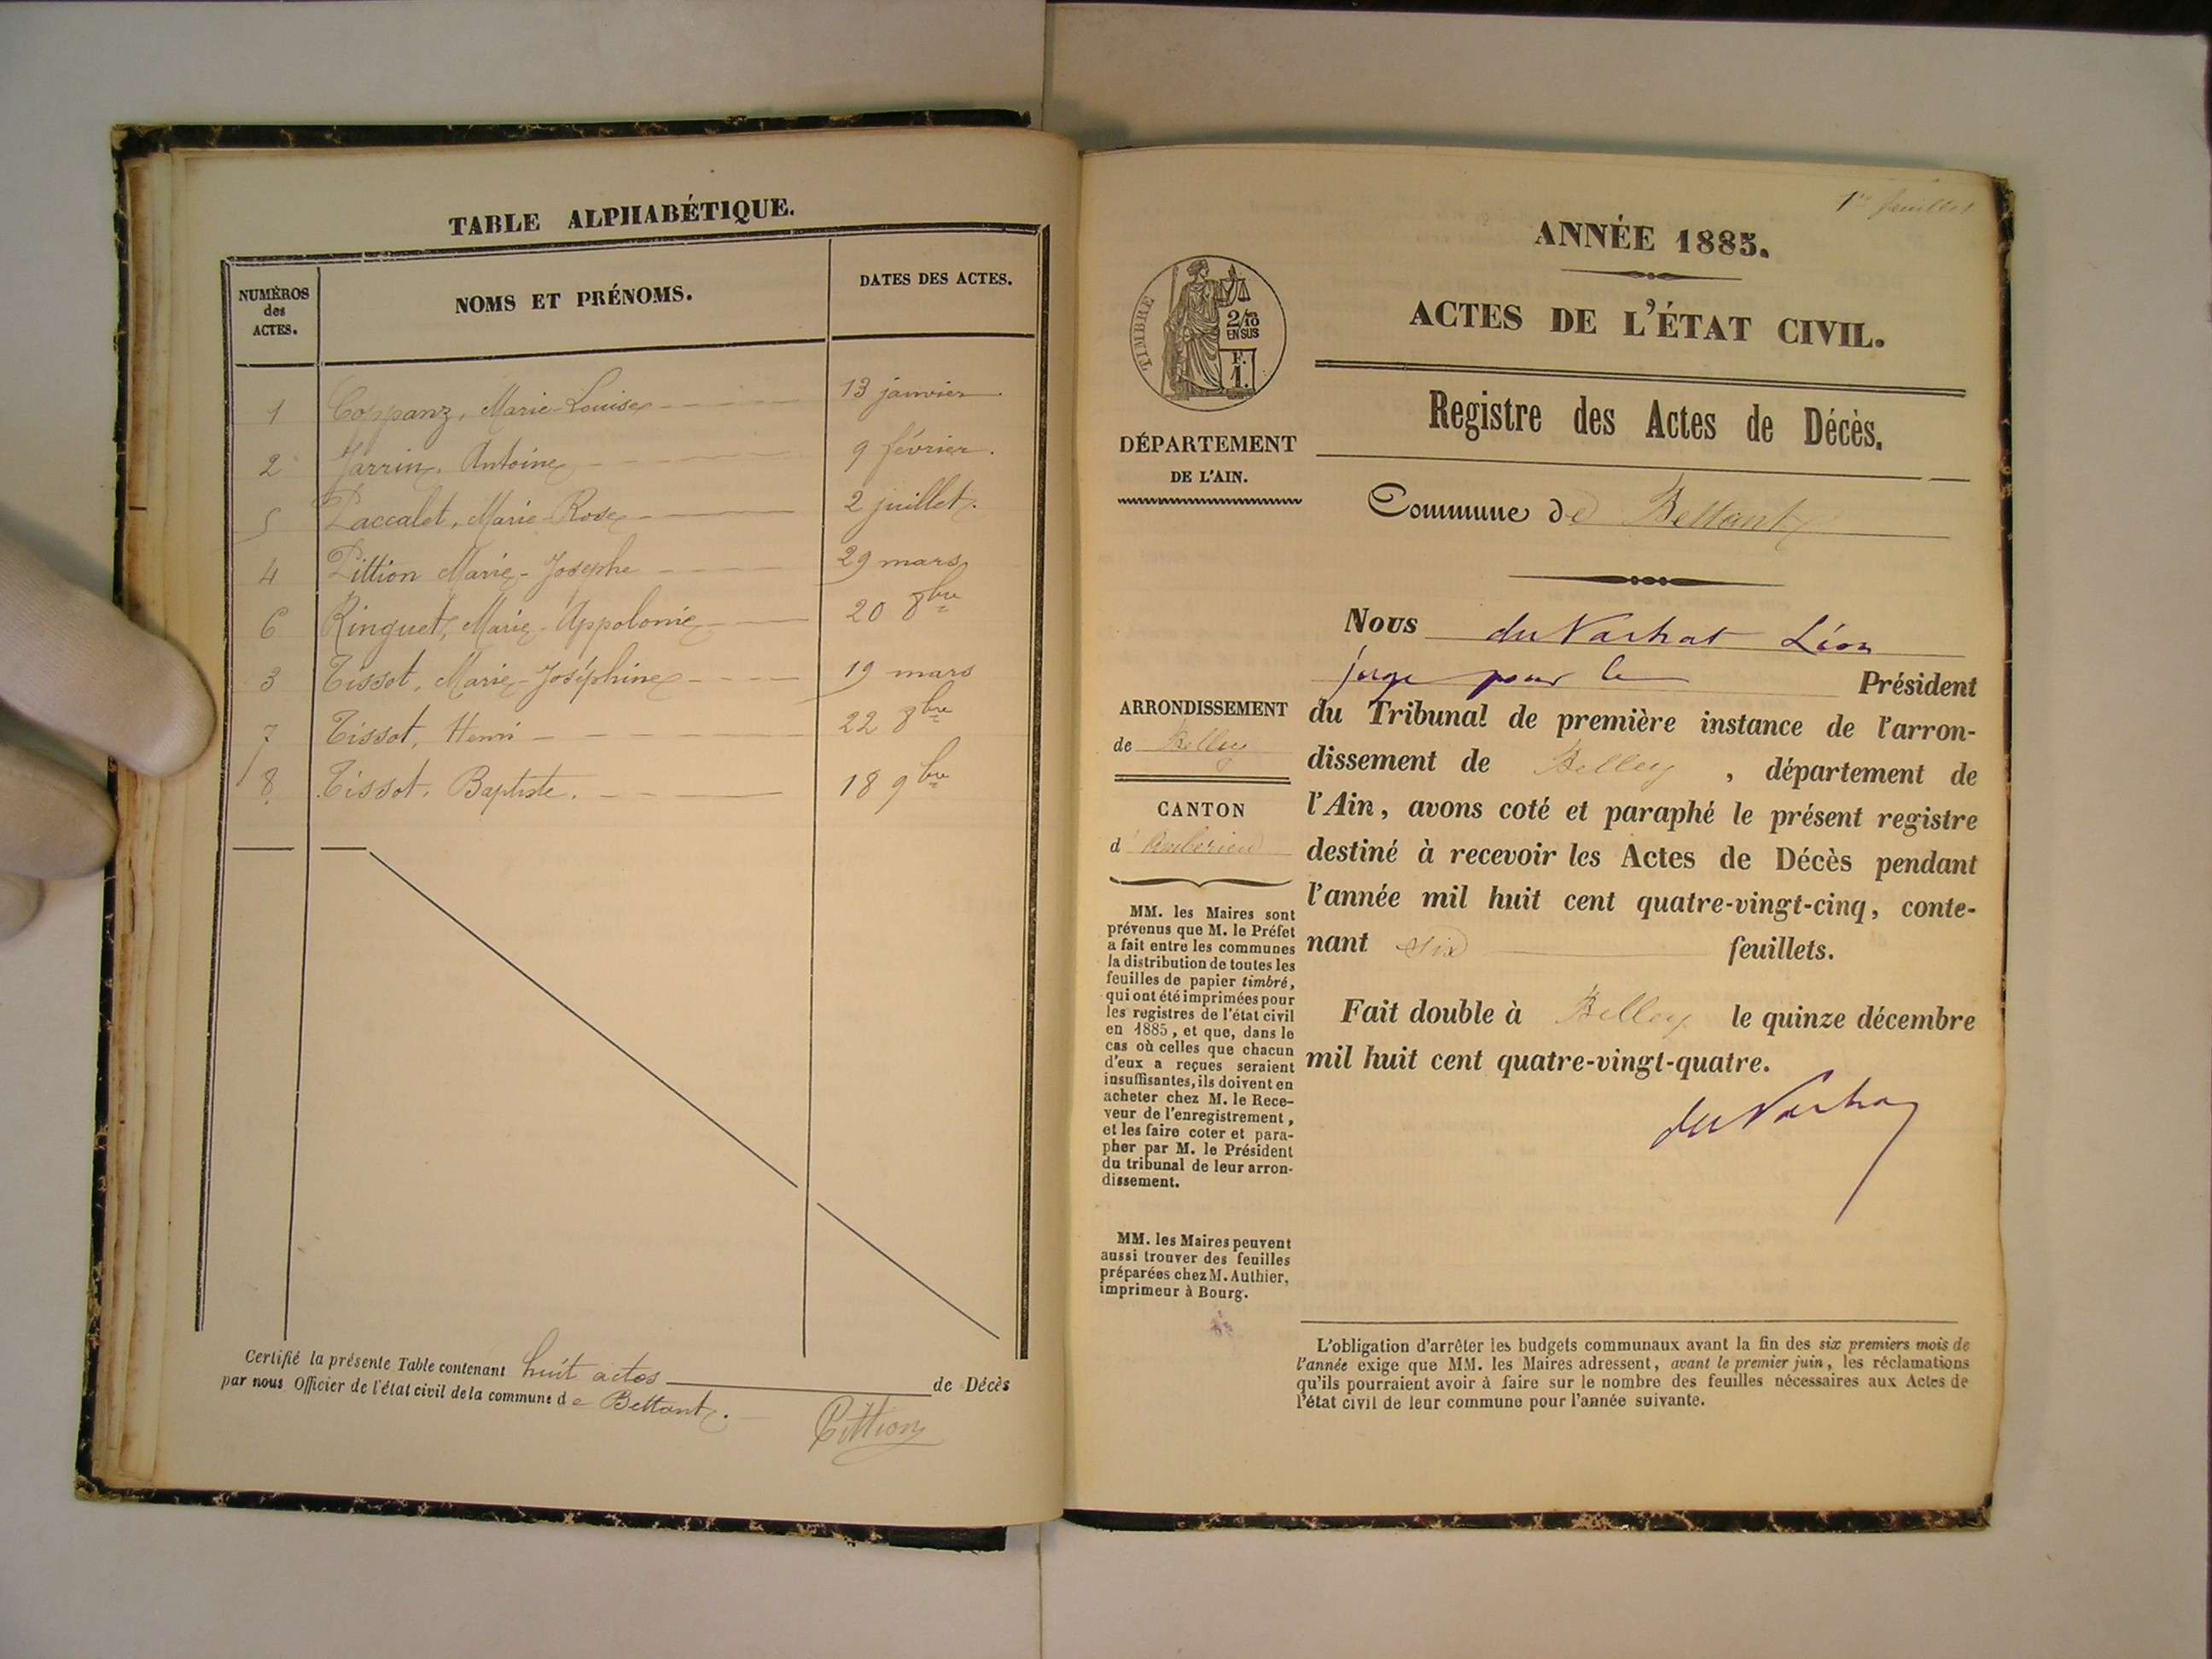 TABLE ALPHABÉTIQUE.
NUMÉROS des ACTES. NOMS ET PRÉNOMS. DATES DES ACTES.
1 Coppanz, Marie-Louise 13 janvier
2 Jarrin, Antoine 9 février.
5 Paccalet, Marie-Rose 2 juillet.
4 Pittion Marie-Josephe 29 mars
6 Ringuet, Marie-Appolonie 20 8bre
3 Tissot, Marie-Joséphine 19 mars
7 Tissot, Henri 22 8bre
8 Tissot, Baptiste. 18 9bre
Certifié la présente Table contenant huit actes de Décès
par nous Officier de l'état civil de la commune de Bettant.
Pittion
1er feuillet
ANNÉE 1885.
ACTES DE L'ÉTAT CIVIL.
Registre des Actes de Décès.
Commune de Bettant
TIMBRE
2/10
EN SUS
F.
1.
DÉPARTEMENT
DE L'AIN.
ARRONDISSEMENT
de Belley
CANTON
d'Ambérieu
MM. les Maires sont
prévenus que M. le Préfet
a fait entre les communes
la distribution de toutes les
feuilles de papier timbré,
qui ont été imprimées pour
les registres de l'état civil
en 1885, et que, dans le
cas où celles que chacun
d'eux a reçues seraient
insuffisantes, ils doivent en
acheter chez M. le Rece-
veur de l'enregistrement,
et les faire coter et para-
pher par M. le Président
du tribunal de leur arron-
dissement.
MM. les Maires peuvent
aussi trouver des feuilles
préparées chez M. Authier,
imprimeur à Bourg.
Nous du Vachat Léon
juge pour le Président
du Tribunal de première instance de l'arron-
dissement de Belley, département de
l'Ain, avons coté et paraphé le présent registre
destiné à recevoir les Actes de Décès pendant
l'année mil huit cent quatre-vingt-cinq, conte-
nant six feuillets.
Fait double à Belley le quinze décembre
mil huit cent quatre-vingt-quatre.
du Vachat
L'obligation d'arrêter les budgets communaux avant la fin des six premiers mois de
l'année exige que MM. les Maires adressent, avant le premier juin, les réclamations
qu'ils pourraient avoir à faire sur le nombre des feuilles nécessaires aux Actes de
l'état civil de leur commune pour l'année suivante.